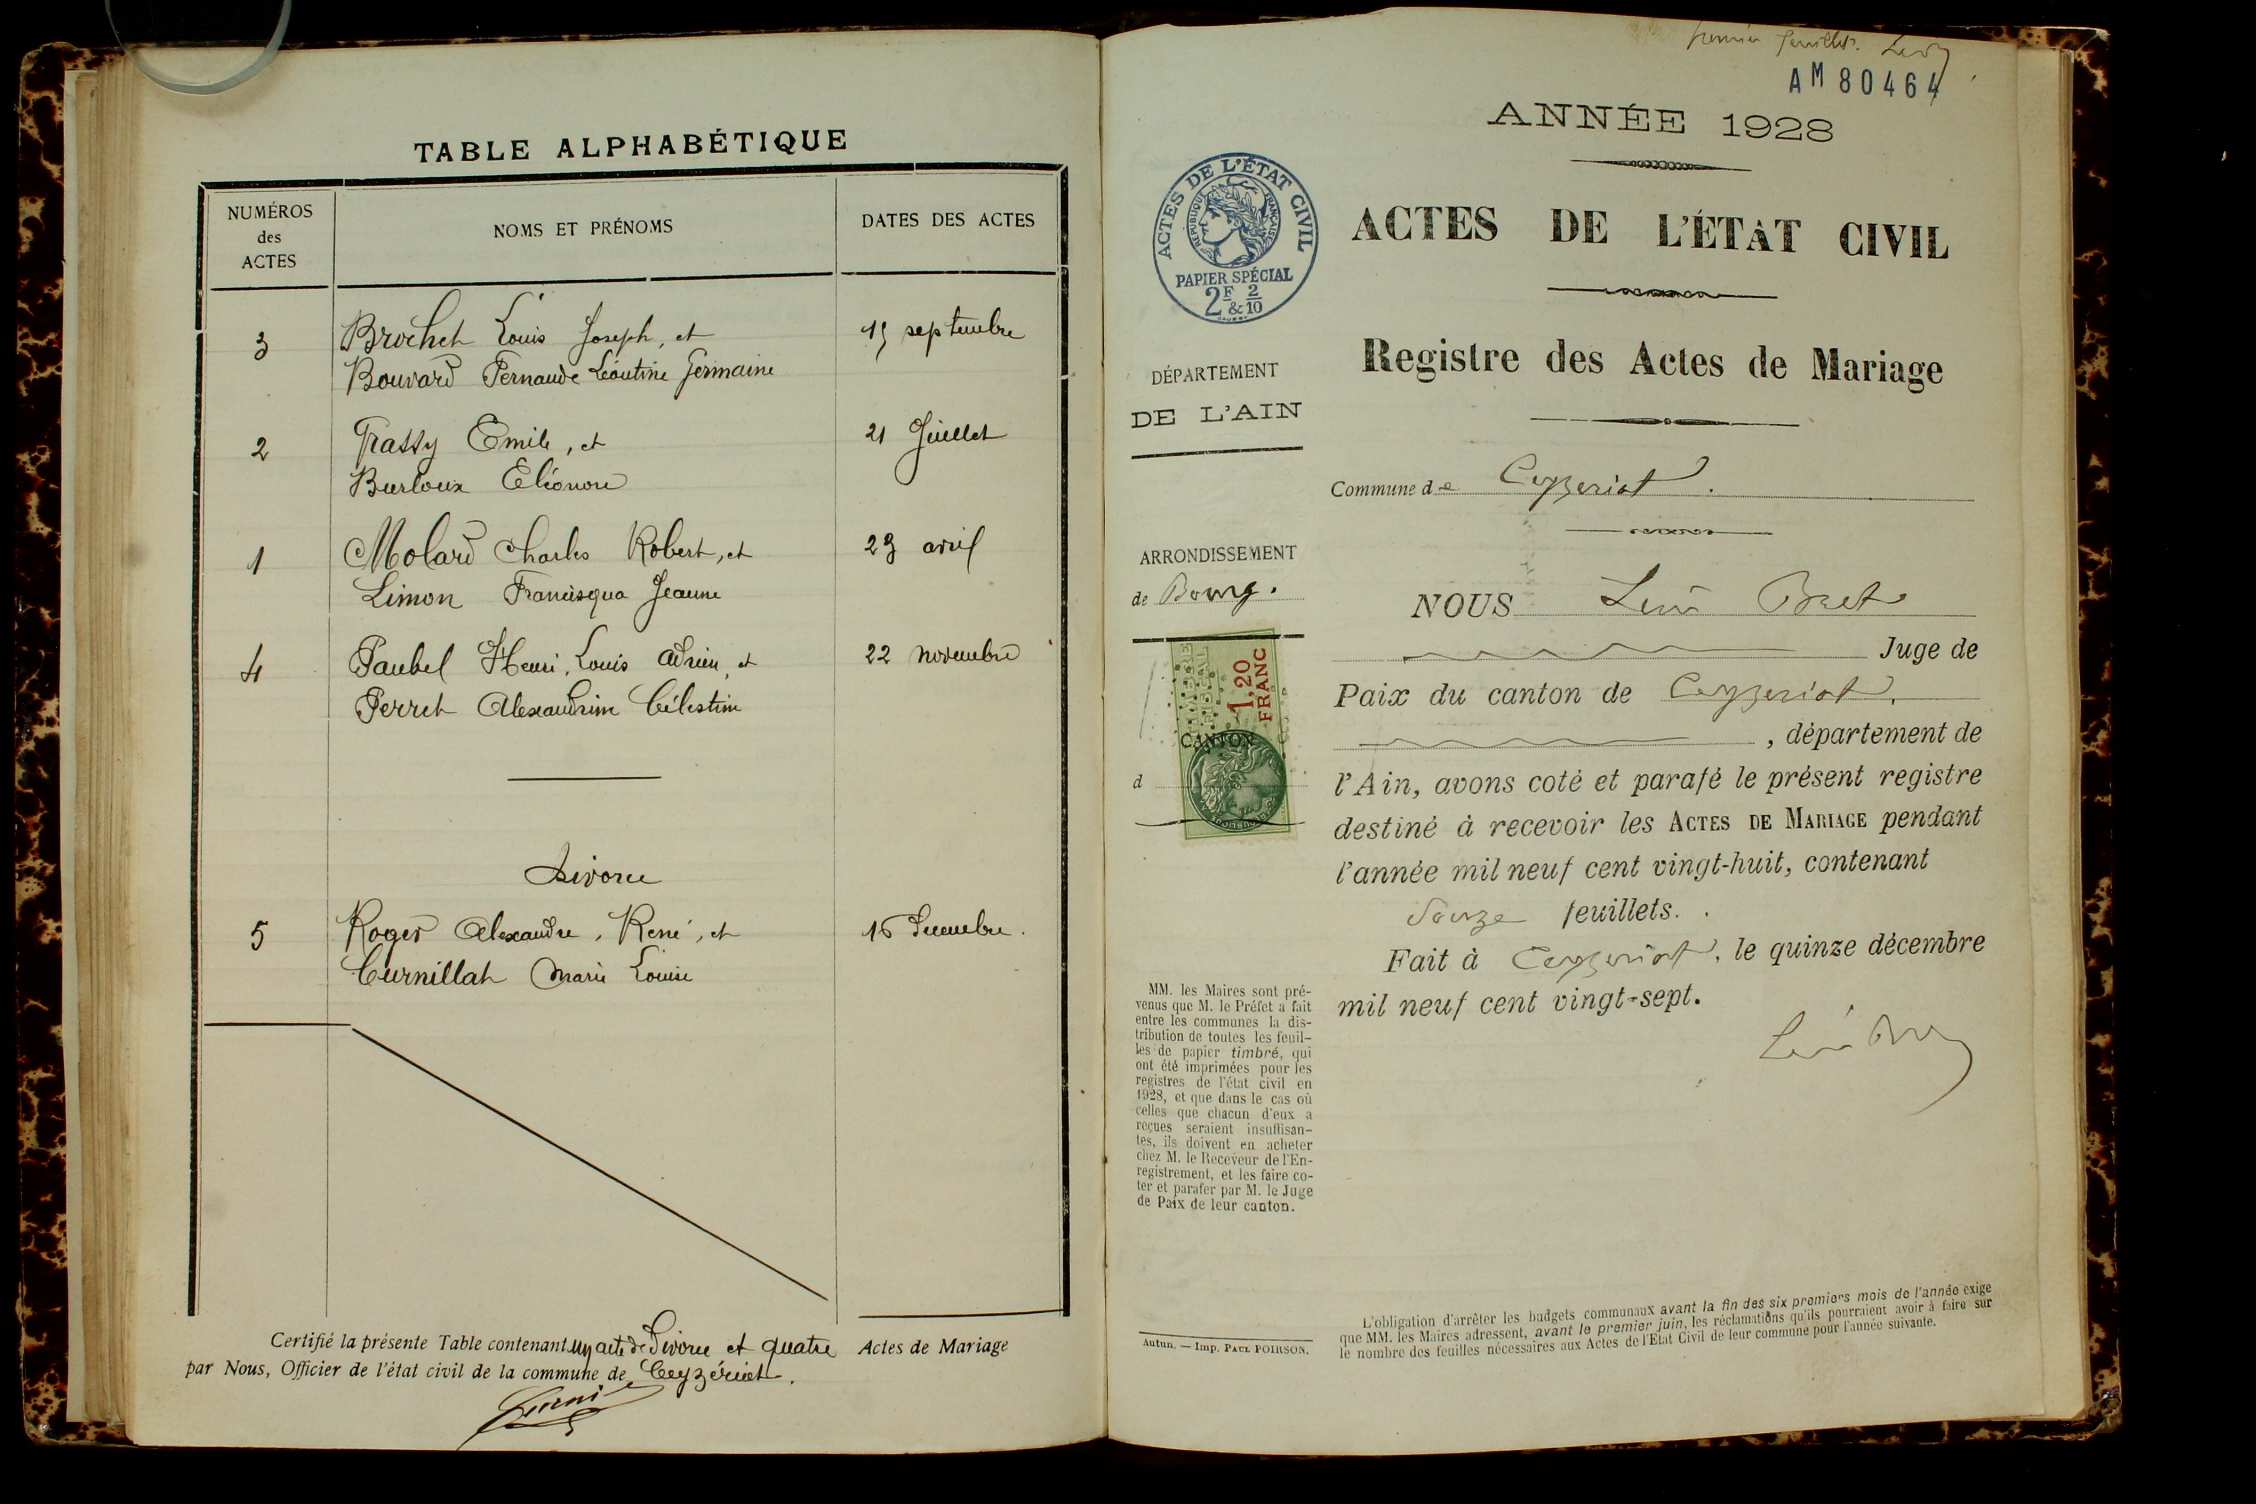 TABLE ALPHABÉTIQUE
NUMÉROS des ACTES
NOMS ET PRÉNOMS
DATES DES ACTES
3 Brochet Louis Joseph, et 15 septembre
Bouvard Fernande Léontine Germaine
2 Emile, et 21 Juillet
Burloux Eléonore
1 Molard Charles Robert, et 23 avril
Limon Francisqua Jeanne
4 Paubel Henri, Louis Adrien, et 22 novembre
Perret Alexandrine Célestine
Divorce
5 Roger Alexandre, René, et 16 Decembre.
Curnillat Marie Louise
Certifié la présente Table contenant un acte de Divorce et quatre Actes de Mariage
par Nous, Officier de l'état civil de la commune de Ceyzériat.
premier feuillet.
AM 80464
ANNÉE 1928
ACTES DE L'ÉTAT CIVIL
RÉPUBLIQUE FRANÇAISE
PAPIER SPÉCIAL
2F & 2/10
ACTES DE L'ÉTAT CIVIL
Registre des Actes de Mariage
DÉPARTEMENT
DE L'AIN
Commune de Ceyzeriat.
ARRONDISSEMENT
de Bourg.
1,20
FRANC
CANTON
d
NOUS Léon
Juge de
Paix du canton de Ceyzeriat,
, département de
l'Ain, avons coté et parafé le présent registre
destiné à recevoir les ACTES DE MARIAGE pendant
l'année mil neuf cent vingt-huit, contenant
feuillets.
Fait à Ceyzeriat, le quinze décembre
mil neuf cent vingt-sept.
MM. les Maires sont pré-
venus que M. le Préfet a fait
entre les communes la dis-
tribution de toutes les feuil-
les de papier timbré, qui
ont été imprimées pour les
registres de l'état civil en
1928, et que dans le cas où
celles que chacun d'eux a
reçues seraient insuffisan-
tes, ils doivent en acheter
chez M. le Receveur de l'En-
registrement, et les faire co-
ter et parafer par M. le Juge
de Paix de leur canton.
Autun. — Imp. PAUL POIRSON.
L'obligation d'arrêter les budgets communaux avant la fin des six premiers mois de l'année exige
que MM. les Maires adressent, avant le premier juin, les réclamations qu'ils pourraient avoir à faire sur
le nombre des feuilles nécessaires aux Actes de l'Etat Civil de leur commune pour l'année suivante.